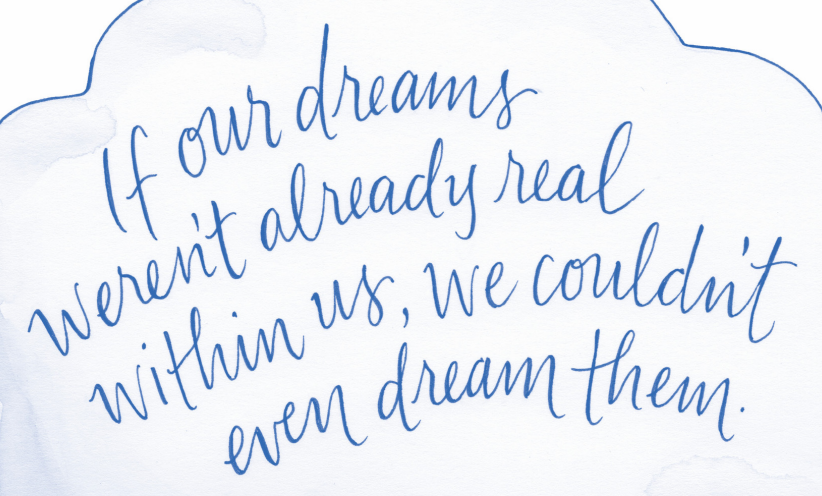 If our dreams
weren't already real
within us, we couldn't
even dream them.